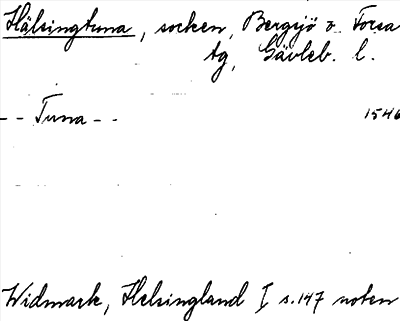 Hälsingtuna, socken, Bergsjö o. Forsa
tg, Gävleb. l.
-- Tuna -- 1546
Widmark, Helsingland I s. 147 noten